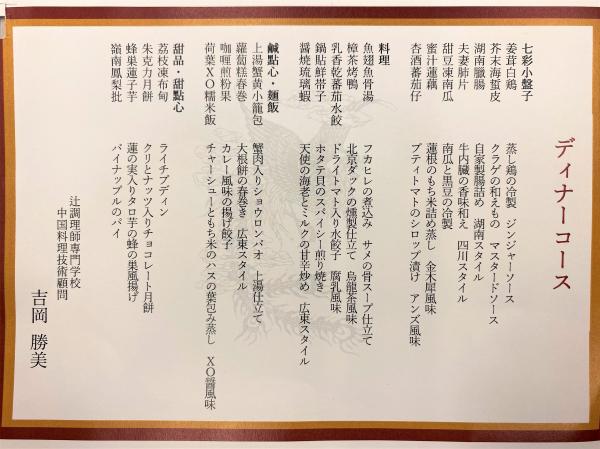 ディナーコース
七彩小盤子
姜茸白鶏 蒸し鶏の冷製 ジンジャーソース
芥末海蜇皮 クラゲの和えもの マスタードソース
湖南臘腸 自家製腸詰め 湖南スタイル
夫妻肺片 牛内臓の香味和え 四川スタイル
甜豆凍南瓜 南瓜と黒豆の冷製
蜜汁蓮藕 蓮根のもち米詰め蒸し 金木犀風味
杏酒蕃茄仔 プティトマトのシロップ漬け アンズ風味
料理
魚翅魚骨湯 フカヒレの煮込み サメの骨スープ仕立て
樟茶烤鴨 北京ダックの燻製仕立て 烏龍茶風味
乳香乾蕃茄水餃 ドライトマト入り水餃子 腐乳風味
鍋貼鮮帯子 ホタテ貝のスパイシー煎り焼き
醤焼琉璃蝦 天使の海老とミルクの甘辛炒め 広東スタイル
鹹點心・麺飯
上湯蟹黄小籠包 蟹肉入りショウロンパオ 上湯仕立て
蘿蔔糕春巻 大根餅の春巻き 広東スタイル
咖喱煎粉果 カレー風味の揚げ餃子
荷葉XO糯米飯 チャーシューともち米のハスの葉包み蒸し XO醤風味
甜品・甜點心
荔枝凍布甸 ライチプディン
朱克力月餅 クリとナッツ入りチョコレート月餅
蜂巣蓮子芋 蓮の実入りタロ芋の蜂の巣風揚げ
嶺南鳳梨批 パイナップルのパイ
辻調理師専門学校
中国料理技術顧問
吉岡 勝美